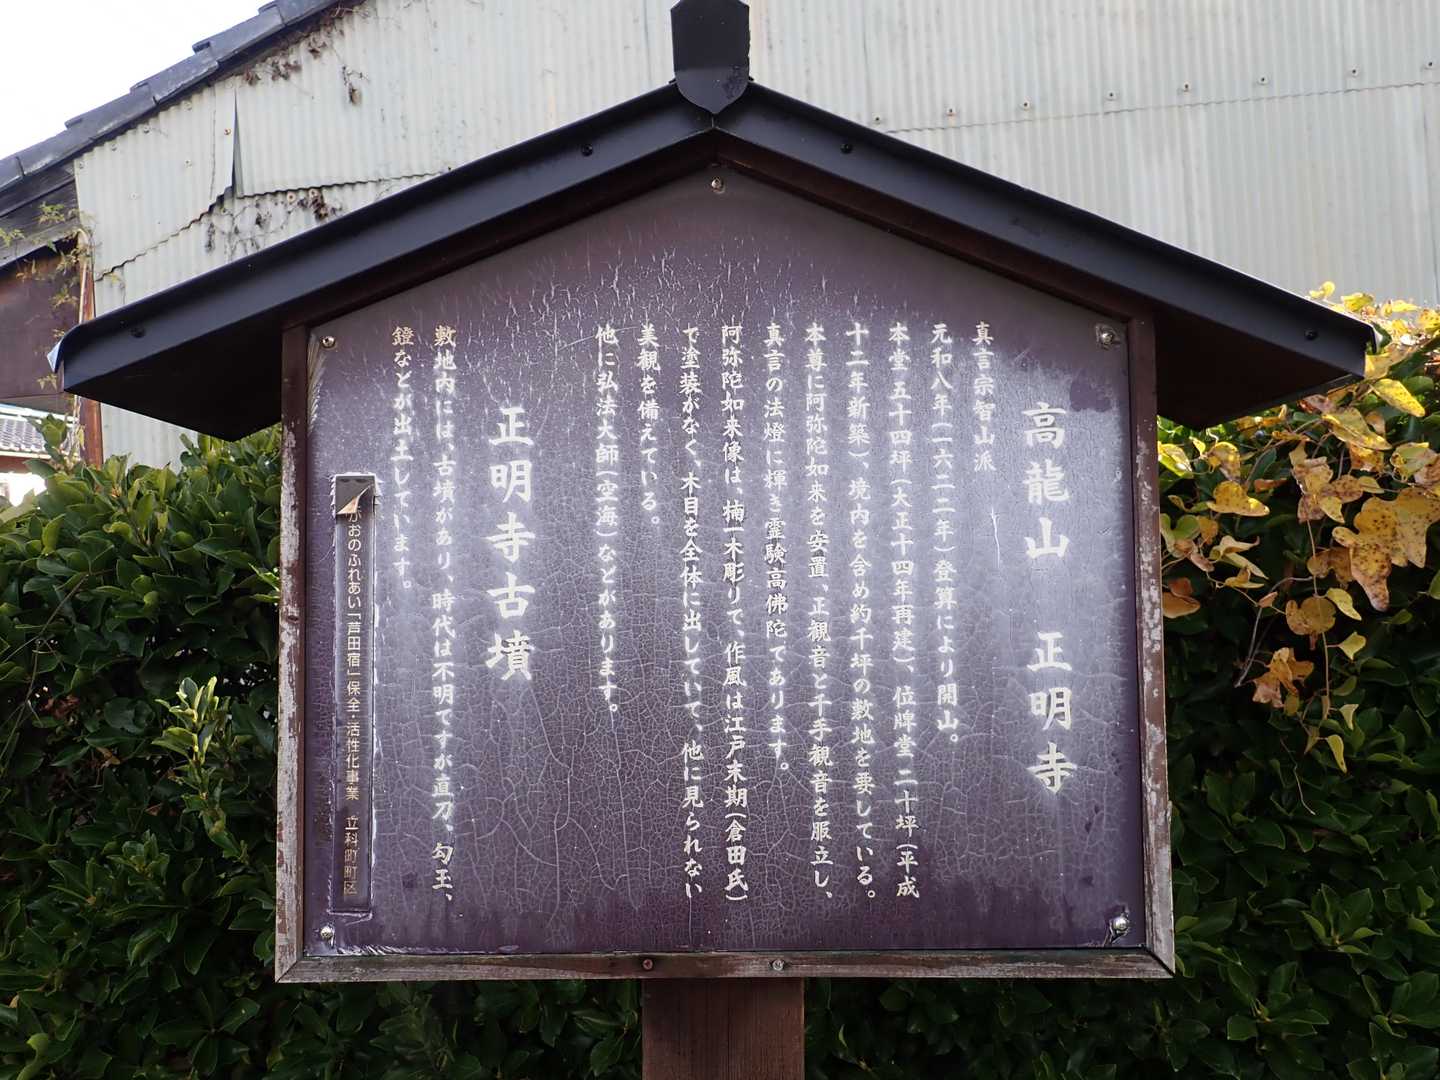 高龍山 正明寺
真言宗智山派
元和八年(一六二二年)登算により開山。
本堂 五十四坪(大正十四年再建)、位牌堂 二十坪(平成
十二年新築)、境内を含め約千坪の敷地を要している。
本尊に阿弥陀如来を安置、正観音と千手観音を服立し、
真言の法燈に輝き霊験高佛陀であります。
阿弥陀如来像は、楠一木彫りで、作風は江戸末期(倉田氏)
で塗装がなく、木目を全体に出していて、他に見られない
美観を備えている。
他に弘法大師(空海)などがあります。
正明寺古墳
敷地内には、古墳があり、時代は不明ですが直刀、勾玉、
鏡などが出土しています。
がおのふれあい「芦田宿」保全・活性化事業 立科町町区